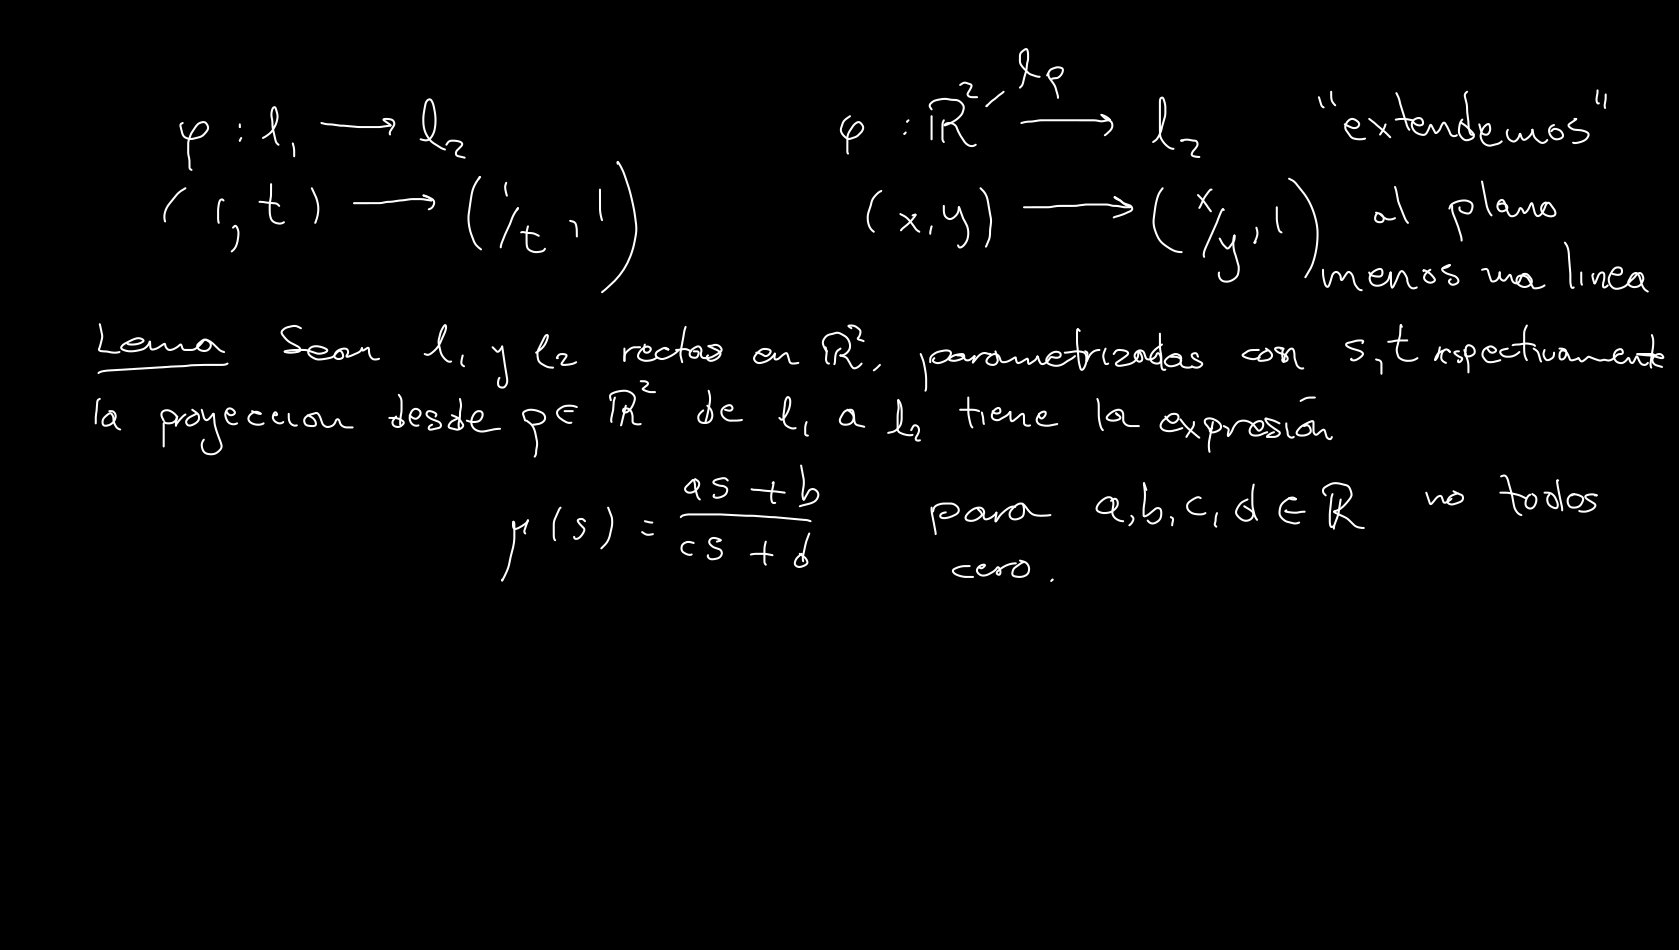 φ : l₁ → l₂
(1, t) → (1/t, 1)
φ : ℝ² - lp → l₂ "extendemos"
(x, y) → (x/y, 1) al plano
menos una linea
Lema Sean l₁ y l₂ rectas en ℝ², parametrizadas con s, t respectivamente
la proyeccion desde p ∈ ℝ² de l₁ a l₂ tiene la expresión
μ(s) = (as + b)/(cs + d) para a, b, c, d ∈ ℝ no todos
cero.